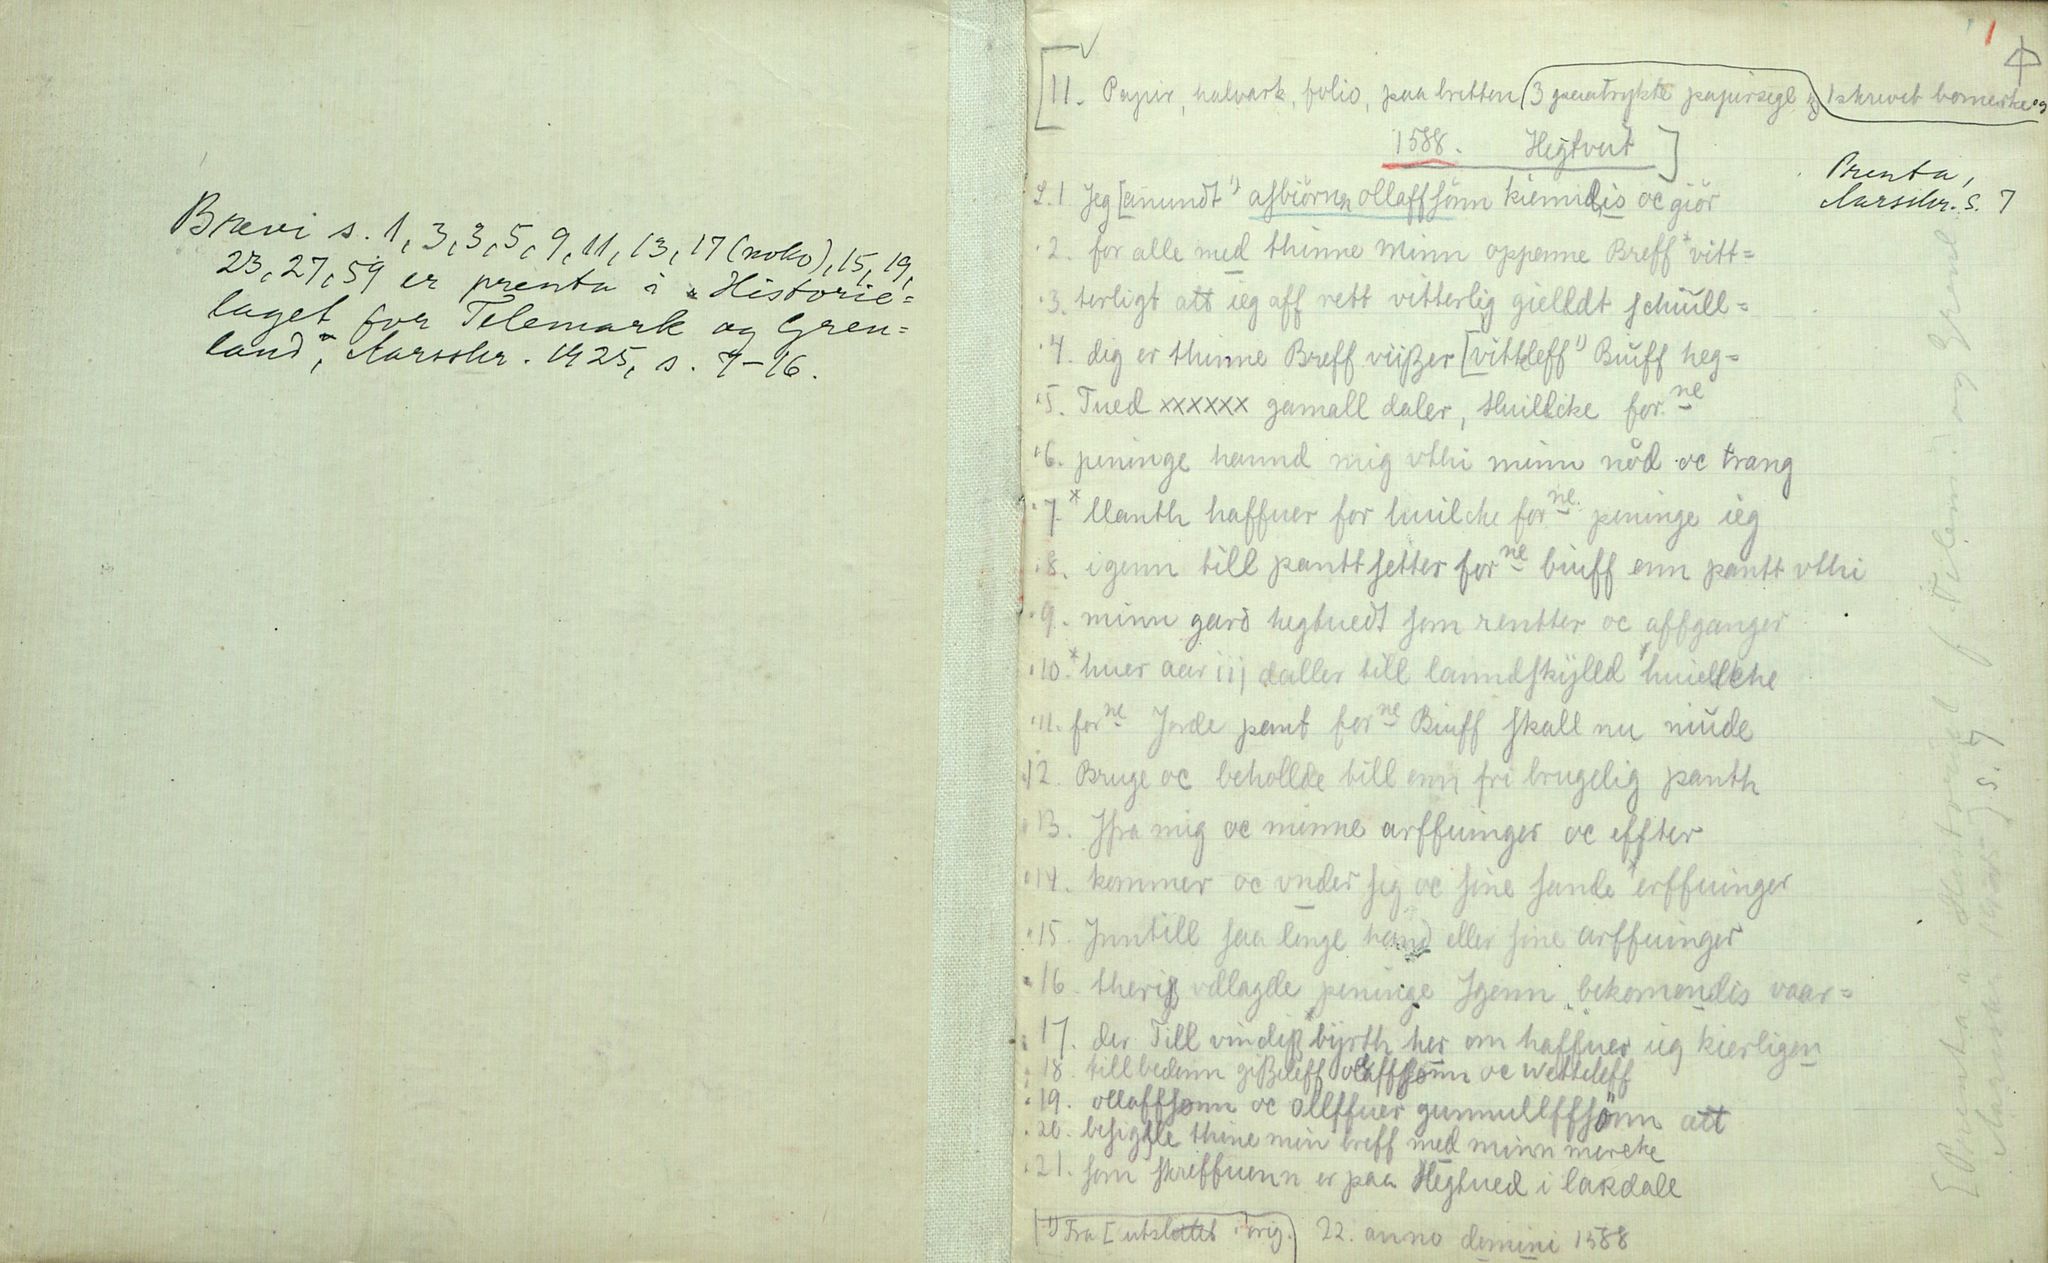 Brevi s. 1, 3, 3, 5, 9, 11, 13, 17 (noko), 15, 19,
23, 27, 59 er prenta i "Historie-
laget for Telemark og Gren-
land", Aarsskr. 1925, s. 7-16.
1
[11. Papir, halvark, folio, paa bretten (3 paatrykte papirsegl 1 skrevet bomerke og
1588. Hegtveit]
Prenta,
Aarsskr. s. 7
L. 1 Jeg [amundt 1) asbiörnn ollaffsönn kiennelis oc giör
2. for alle med thinne minn oppenne Breff *vitt=
3. terligt att ieg aff rett vitterlig gielldt schüll=
4. dig er thinne Breff viißer [vittleff 1) Buiff heg=
5. Tued xxxxxx gamall daler, Huillcke for ne
6. peninge hannd mig vthi minn nöd oc trang
7. *llanth haffuer for huilche for ne peninge ieg
8. igenn till pantt setter for ne biuff enn pantt vthi
9. minn gard hegtuedt som rentter oc affganger
10. *huer aar iij daller till lanndskÿlld *huiellche
11. for ne Jorde pant for ne Biuff skall nu niüde
12. Bruge oc behollde till enn fri brugelig panth
13. Jfra mig oc minne arffuinger oc effter
14. kommer oc vnder seg oc sine sande *erffuinger
15. Jnntill saa lenge hand eller sine arffuinger
16. theriß vdlagde peninge Jgenn bekomendis vaar=
17. der Till vindiß *byrth her om haffuer ieg kierligen
18. till bedenn gißleff olaffsönn oc wetteleff
19. ollaffsonn oc ollffuer gunnullffsönn att
20. besigle thine min breff med minn mercke
21. som skreffuenn er paa Hegtued i lakdall
1) Fra [ utslettet i orig.) 22. anno domini 1588
[Prenta i Historiel. f. Telem. og Grenl.
Aarsskr. 1925] s. 7